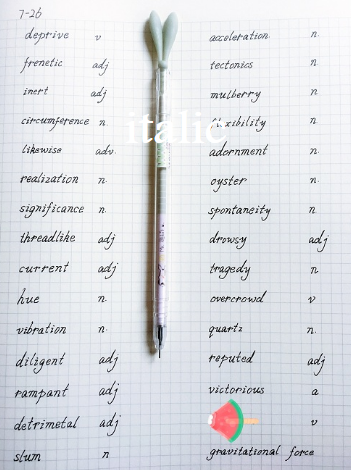 7-26
deprive v
frenetic adj
inert adj
circumference n.
likewise adv.
realization n.
significance n.
threadlike adj
current adj
hue n.
vibration n.
diligent adj
rampant adj
detrimetal adj
slum n
italic
acceleration n.
tectonics n.
mulberry n.
flexibility n.
adornment n.
oyster n.
spontaneity n.
drowsy adj
tragedy n
overcrowd v
quartz n.
reputed adj
victorious a
v
gravitational force